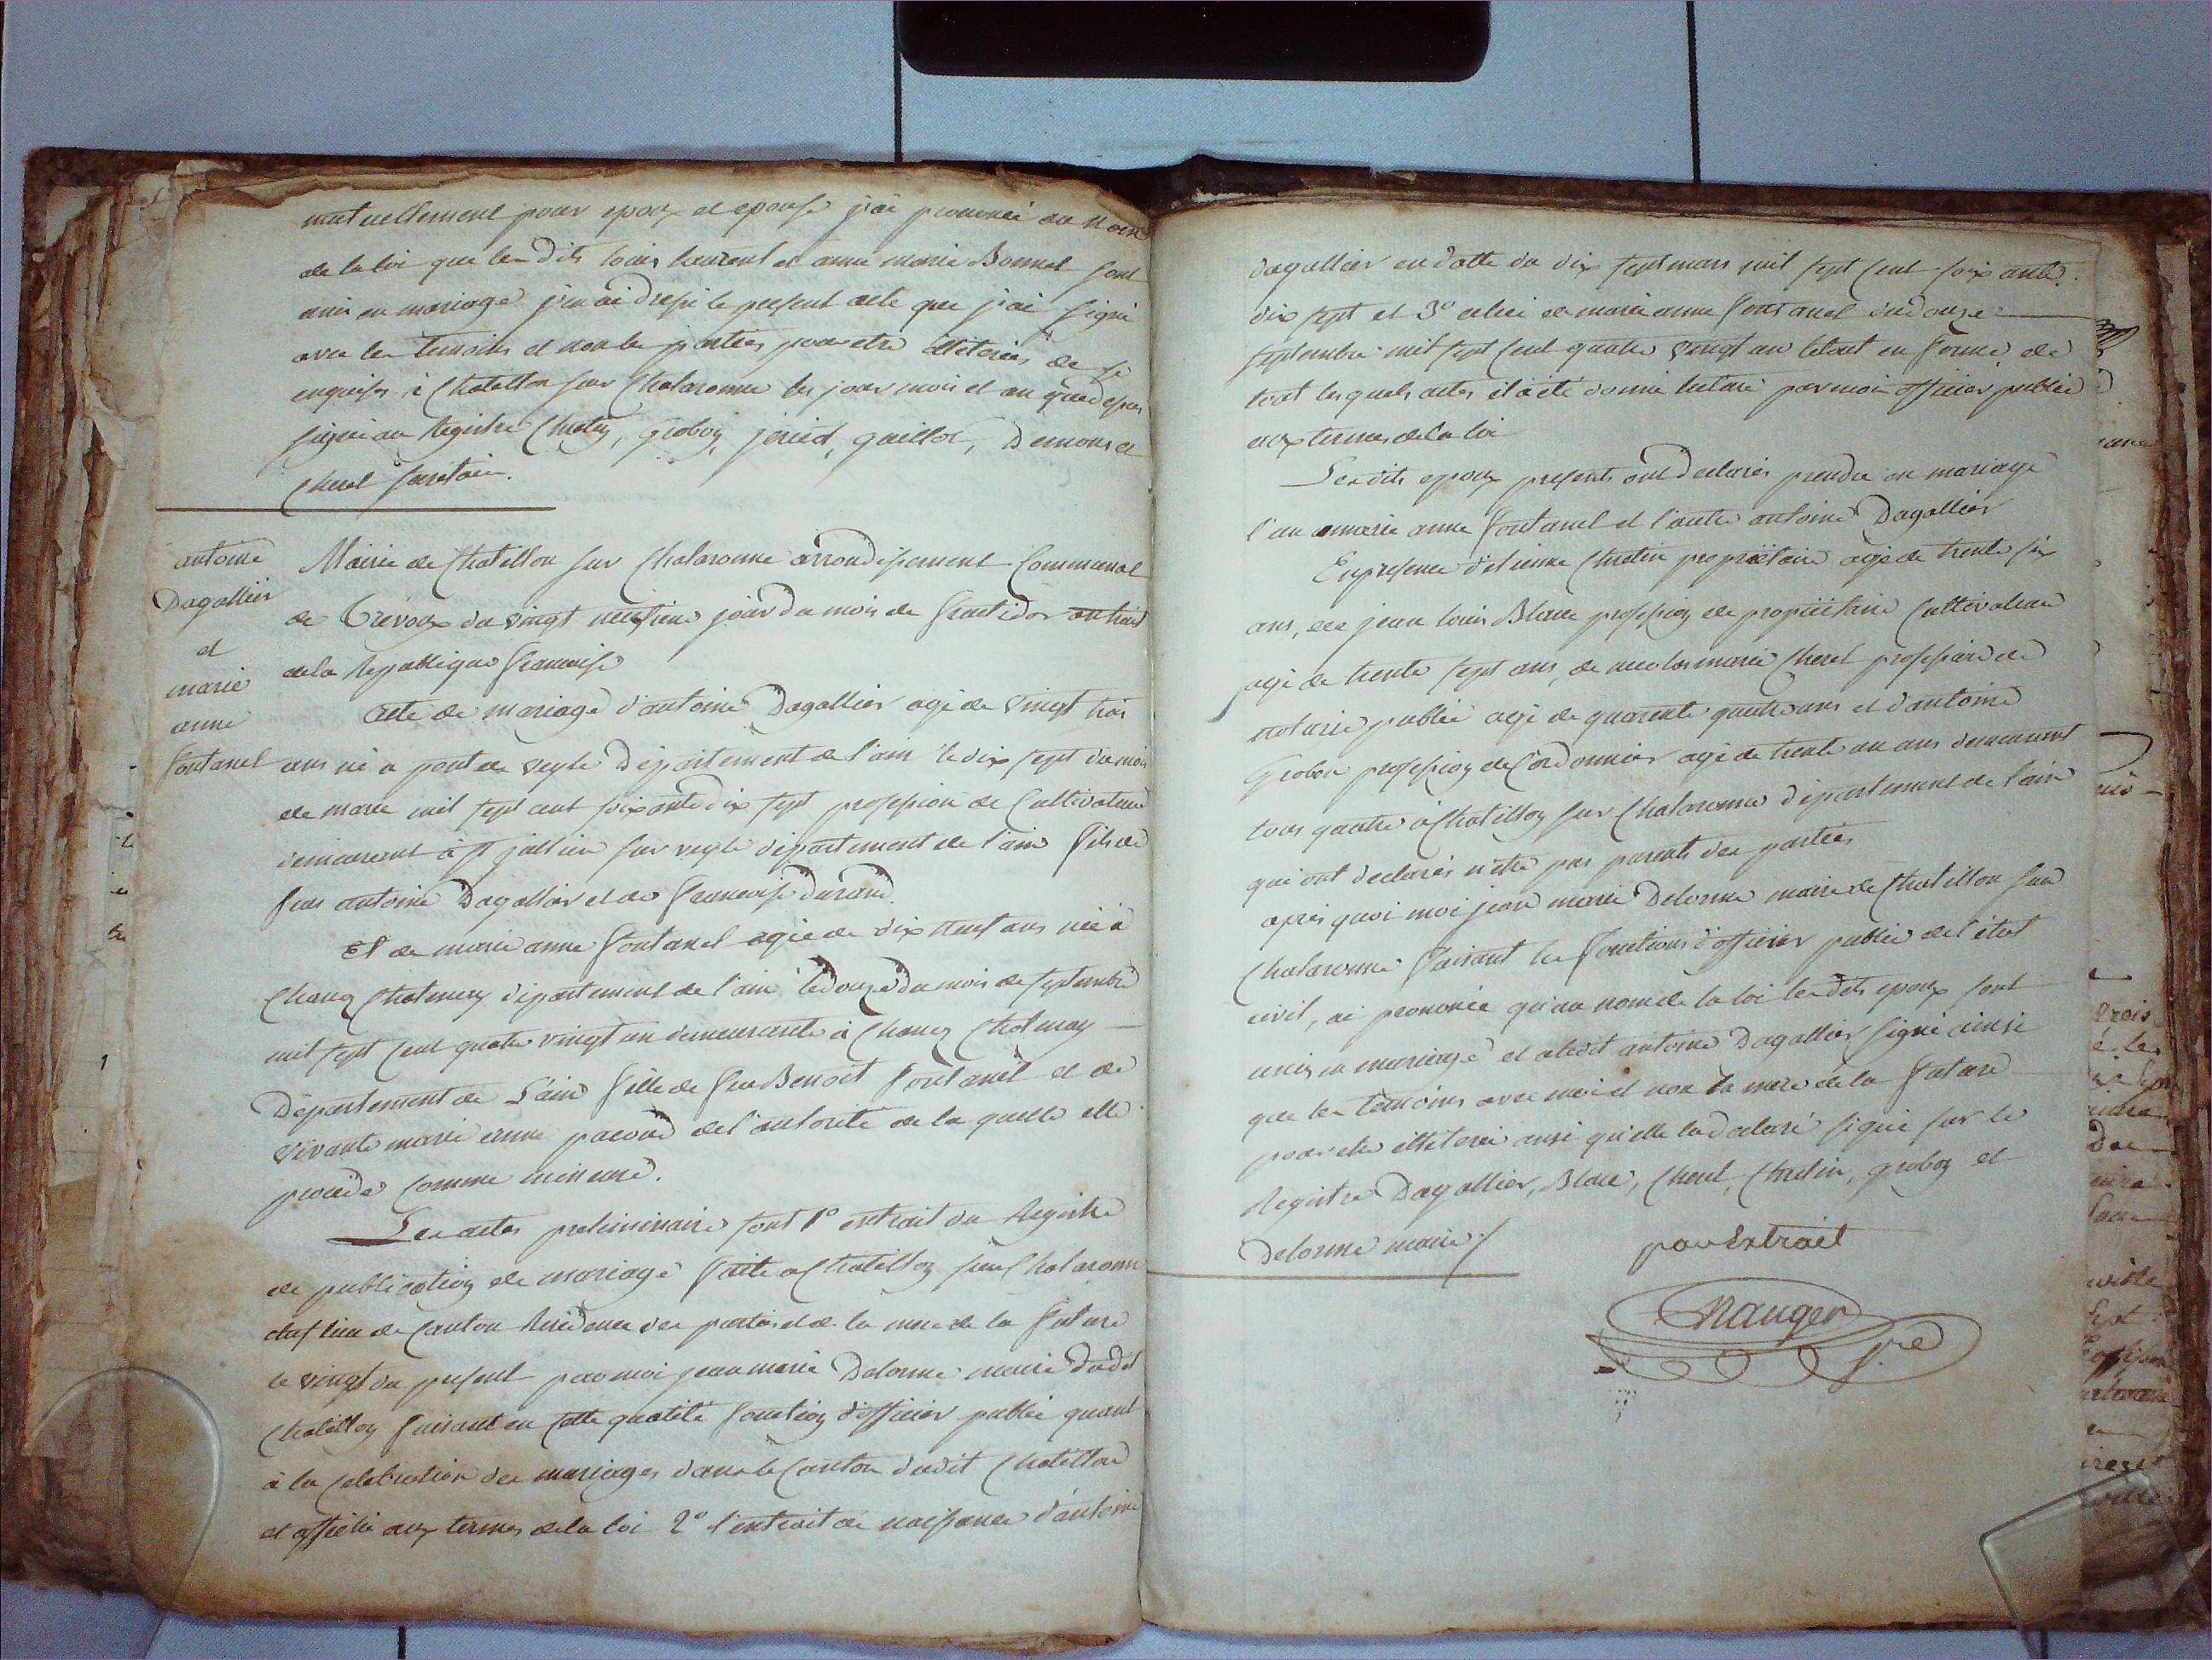 mutuellement pour epoux et epouse j'ai prononcé au nom
de la loi que les dits louis laurent et anne marie Bonnet sont
unis en mariage j'en ai dressé le present acte que j'ai signé
avec les temoins et non les parties pour etre illiterées de ce
enquises à Chatillon sur Chalaronne les jour mois et an que dessus
signé au Registre Chretin, groboz, jarnid, guillot, Demons et
Cherel secretaire.
antoine
Dagallier
et
marie
anne
fontanel
Mairie de Chatillon sur Chalaronne arrondissement Communal
de Trevoux du vingt neufieme jour du mois de fructidor an huit
de la Republique francaise
Acte de mariage d'antoine Dagallier agé de vingt trois
ans né a pont de veyle Département de l'ain le dix sept du mois
de mars mil sept cent soixante dix sept profession de Cultivateur
demeurant à st jullien sur veyle département de l'ain fils de
feu antoine Dagallier et de francoise Durand.
Et de marie anne fontanel agée de dix neuf ans née à
Chanoz Chatenay département de l'ain le douze du mois de septembre
mil sept cent quatre vingt un demeurante à Chanoz Chatenay
Département de L'ain fille de feu Benoit fontanel et de
vivante marie anne pacoud de l'autorité de la quelle elle
procède comme mineure.
Les actes preliminaire sont 1° extrait du Registre
de publication de mariage faite a Chatillon sur Chalaronne
chef lieu de Canton Residence des parties et de la mere de la future
le vingt du present par moi jean marie Delorme maire dudit
Chatillon faisant en cette qualité fonction d'officier public quant
à la Celebration des mariages dans le Canton dudit Chatillon
et affiché aux termes de la loi 2° l'extrait de naissance d'antoine
Dagallier en datte du dix sept mars mil sept cent soixante
dix sept et 3° celui de marie anne fontanel du douze
septembre mil sept cent quatre vingt un le tout en forme de
tout lesquels actes il a été donné lecture par moi officier public
aux termes de la loi
Les dits epoux presents ont declarés prendre en mariage
l'un marie anne fontanel et l'autre antoine Dagallier
En presence d'etienne Chretin propriétaire agé de trente six
ans, de jean louis Blanc profession de propriétaire Cultivateur
agé de trente sept ans, de nicolas marie Cherel profession de
notaire public agé de quarente quatre ans et d'antoine
Groboz profession de Cordonnier agé de trente un ans demeurant
tous quatre à Chatillon sur Chalaronne département de l'ain
qui ont declarés n'etre pas parents des parties
après quoi moi jean marie Delorme maire de Chatillon sur
Chalaronne faisant les fonctions d'officier public de l'état
civil, ai prononcé qu'au nom de la loi les dits epoux sont
unis en mariage et a ledit antoine Dagallier signé ainsi
que les temoins avec moi et non la mere de la future
pour etre illiterée ainsi qu'elle l'a declaré signé sur le
Registre Dagallier, Blanc, Cherel, Chretin, groboz et
Delorme maire /
pour Extrait
Nauger